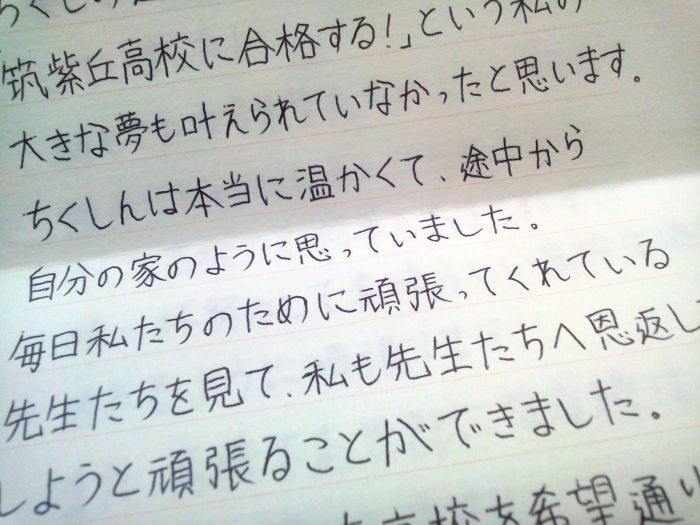 筑紫丘高校に合格する！」という私の
大きな夢も叶えられていなかったと思います。
ちくしんは本当に温かくて、途中から
自分の家のように思っていました。
毎日私たちのために頑張ってくれている
先生たちを見て、私も先生たちへ恩返し
しようと頑張ることができました。
高校を希望通り